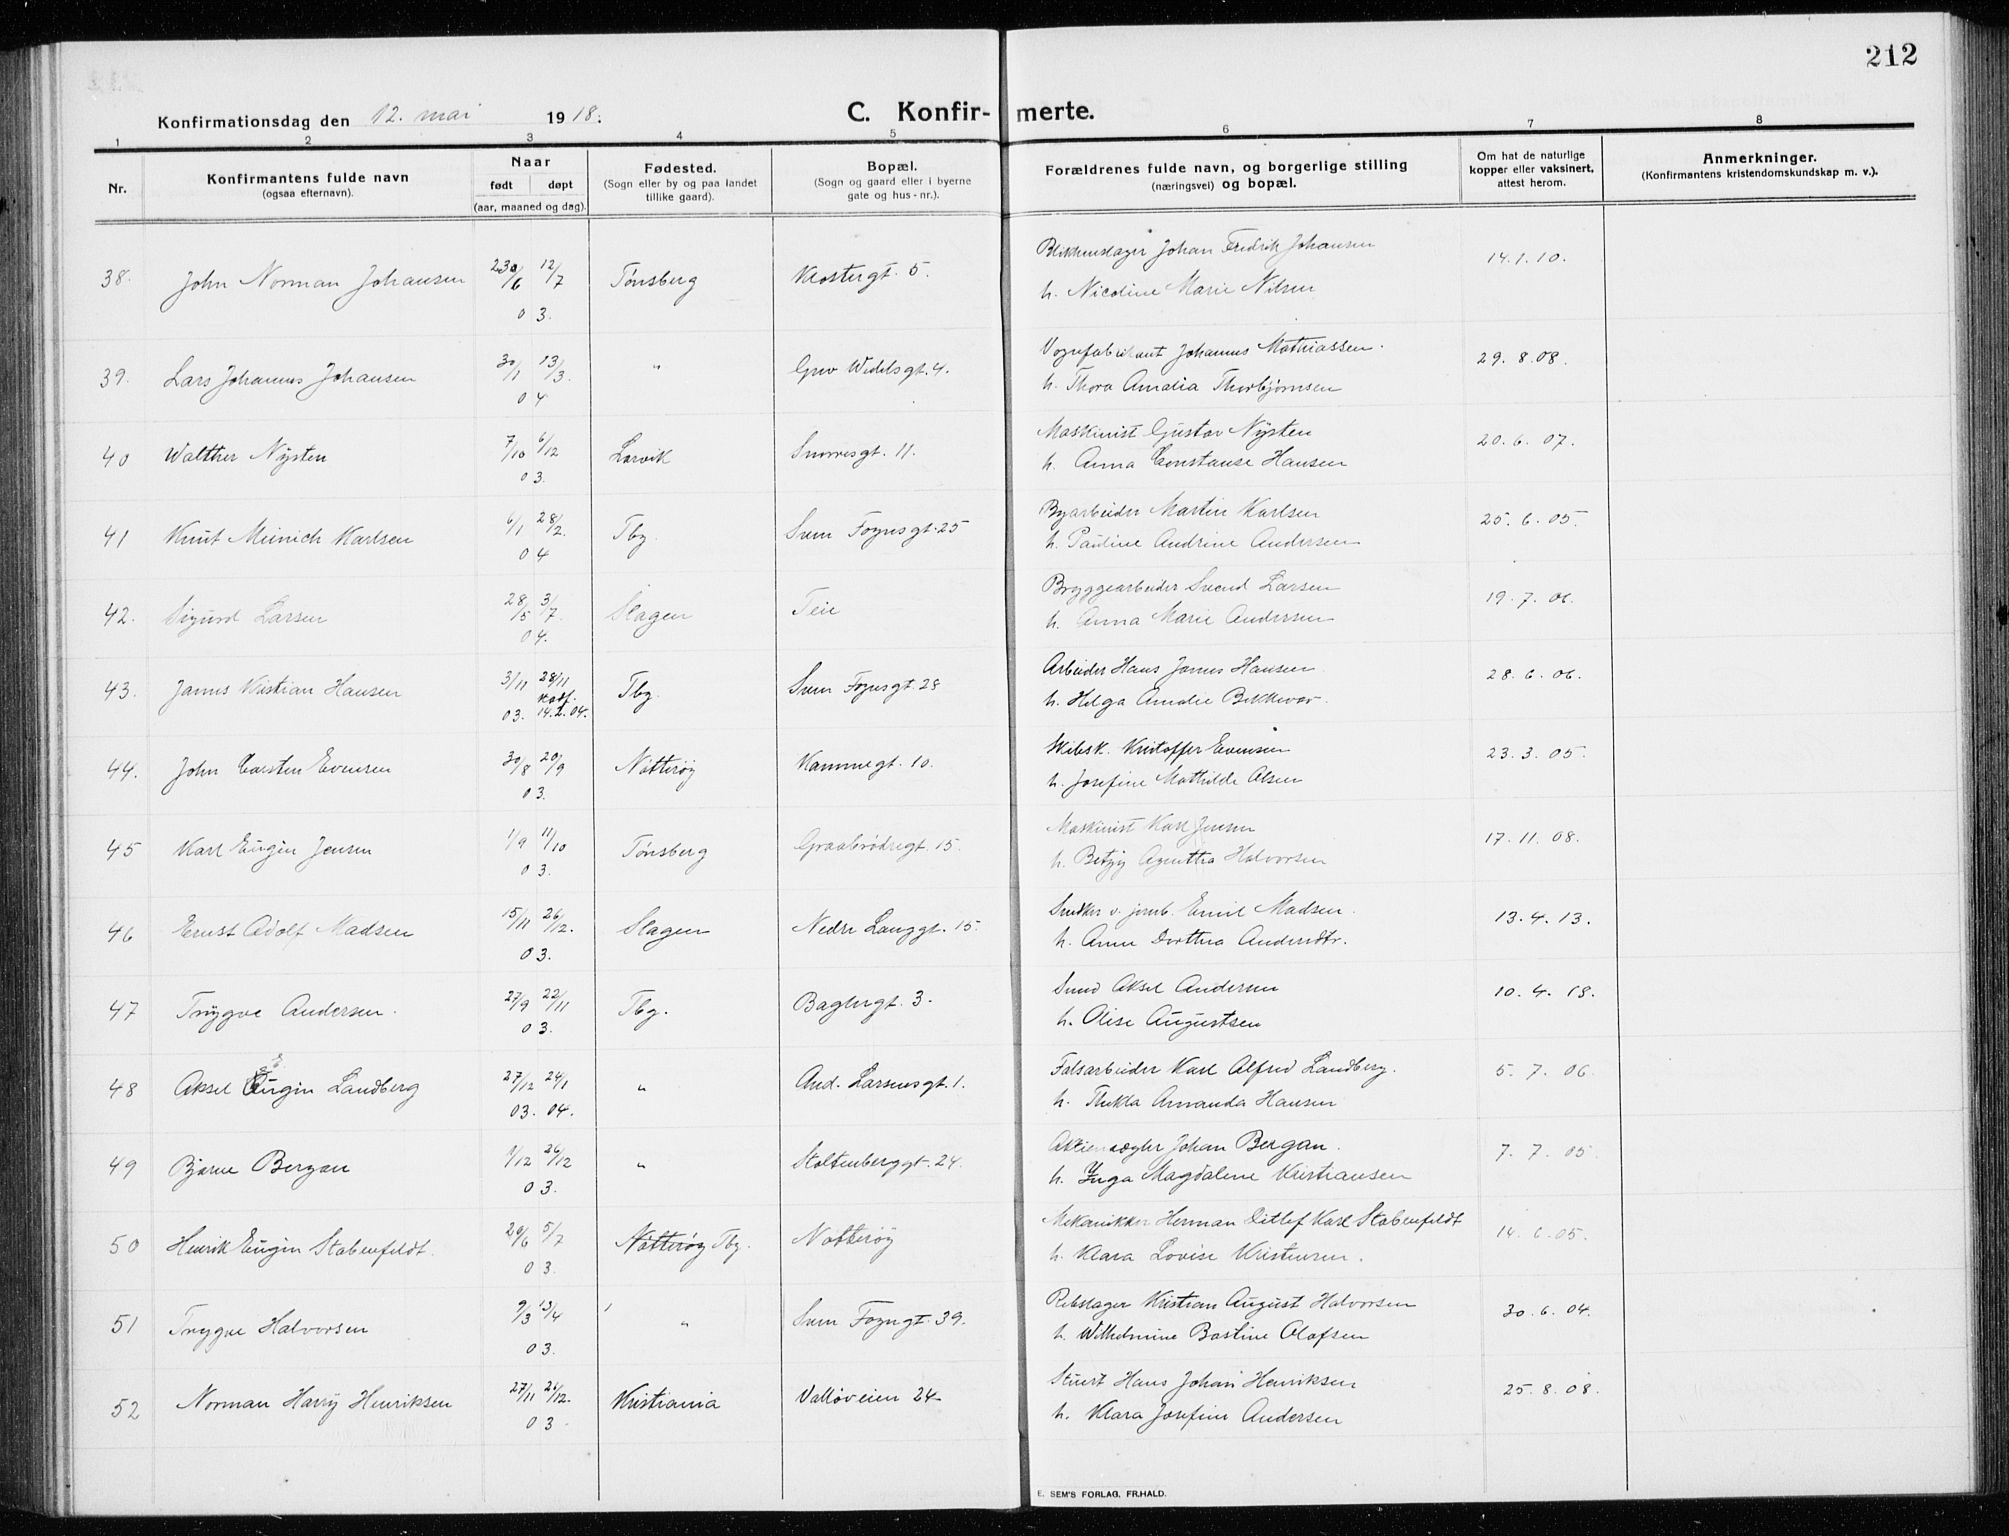 212
Konfirmationsdag den 12. mai 1918.
C. Konfirmerte.
1 2 3 4 5 6 7 8
Nr.
Konfirmantens fulde navn
(ogsaa efternavn).
Naar
født døpt
(aar, maaned og dag).
Fødested.
(Sogn eller by og paa landet
tillike gaard).
Bopæl.
(Sogn og gaard eller i byerne
gate og hus-nr.).
Forældrenes fulde navn, og borgerlige stilling
(næringsvei) og bopæl.
Om hat de naturlige
kopper eller vaksinert,
attest herom.
Anmerkninger.
(Konfirmantens kristendomskundskap m. v.).
38. John Norman Johansen 23/6 12/7 03. Tønsberg Klostergt. 5. Blikkenslager Johan Fredrik Johansen 14.1.10.
h. Nicoline Marie Nilsen
39. Lars Johannes Johansen 30/1 13/3. 04 " Grev Wedelsgt. 4. Vognfabrikant Johannes Mathiassen. 29.8.08.
h. Thora Amalia Thorbjørnsen
40 Walther Nysten 7/10 6/12 03. Larvik Snorresgt. 11. Maskinist Gustav Nysten 20.6.07.
h. Anna Constanse Hansen
41 Knut Meinich Karlsen 6/1 28/2. 04 Tbg. Svem Foynsgt. 25 Byarbeider Martin Karlsen 25.6.05.
h. Pauline Andrine Andersen
42. Sigurd Larsen 28/5 3/7. 04. Slagen Teie Bryggearbeider Svend Larsen 19.7.06.
h. Anna Marie Andersen
43. James Kristian Hansen 3/11 28/11 Tbg. Svem Foynsgt. 28 Arbeider Hans James Hansen 28.6.06.
03. 14.2.04. h. Helga Amalie Bekkevar.
44. John Carsten Evensen 30/8 20/9 03. Nøtterøy Kammegt. 10. Skibsk. Kristoffer Evensen 23.3.05.
h. Josefine Mathilde Olsen
45 Karl Eugen Jensen 1/9 11/10 03. Tønsberg Graabrødregt. 15. Maskinist Karl Jensen 17.11.08.
h. Betzy Agentha Halvorsen
46 Ernst Adolf Madsen 15/11 26/12. 03. Slagen Nedre Langgt. 15. Snekker v. jernb. Emil Madsen. 13.4.13.
h. Anne Dorthea Andersdtr.
47 Trygve Andersen. 27/9 22/11 03. Tbg. Baglergt. 3. Smed Aksel Andersen 10.4.18.
h. Olise Augustsen
48 Aksel Eugen Landberg 27/12 24/1 03. 04. " And. Larsensgt. 1. Falsarbeider Karl Alfred Landberg. 5.7.06.
h. Thekla Amanda Hansen
49 Bjarne Bergan 1/12 26/12 03. " Stoltenberggt. 24. Johan Bergan. 7.7.05.
h. Inga Magdalene Kristiansen
50 Henrik Eugen Stabenfeldt. 29/6 5/7 03. Nøtterøy Tbg. Nøtterøy Mekaniker Herman Ditlef Karl Stabenfeldt 14.6.05.
h. Klara Lovise Kristensen.
51 Trygve Halvorsen 9/3 13/4 03. " Svem Foyngt. 39. Rebslager Kristian August Halvorsen 30.6.04.
h. Wilhelmine Bastine Olafsen
52 Norman Harry Henriksen 27/11 26/12. 03. Kristiania Valløveien 24 Stuert Hans Johan Henriksen 25.8.08.
h. Klara Josefine Andersen
E. SEM'S FORLAG, FR.HALD.